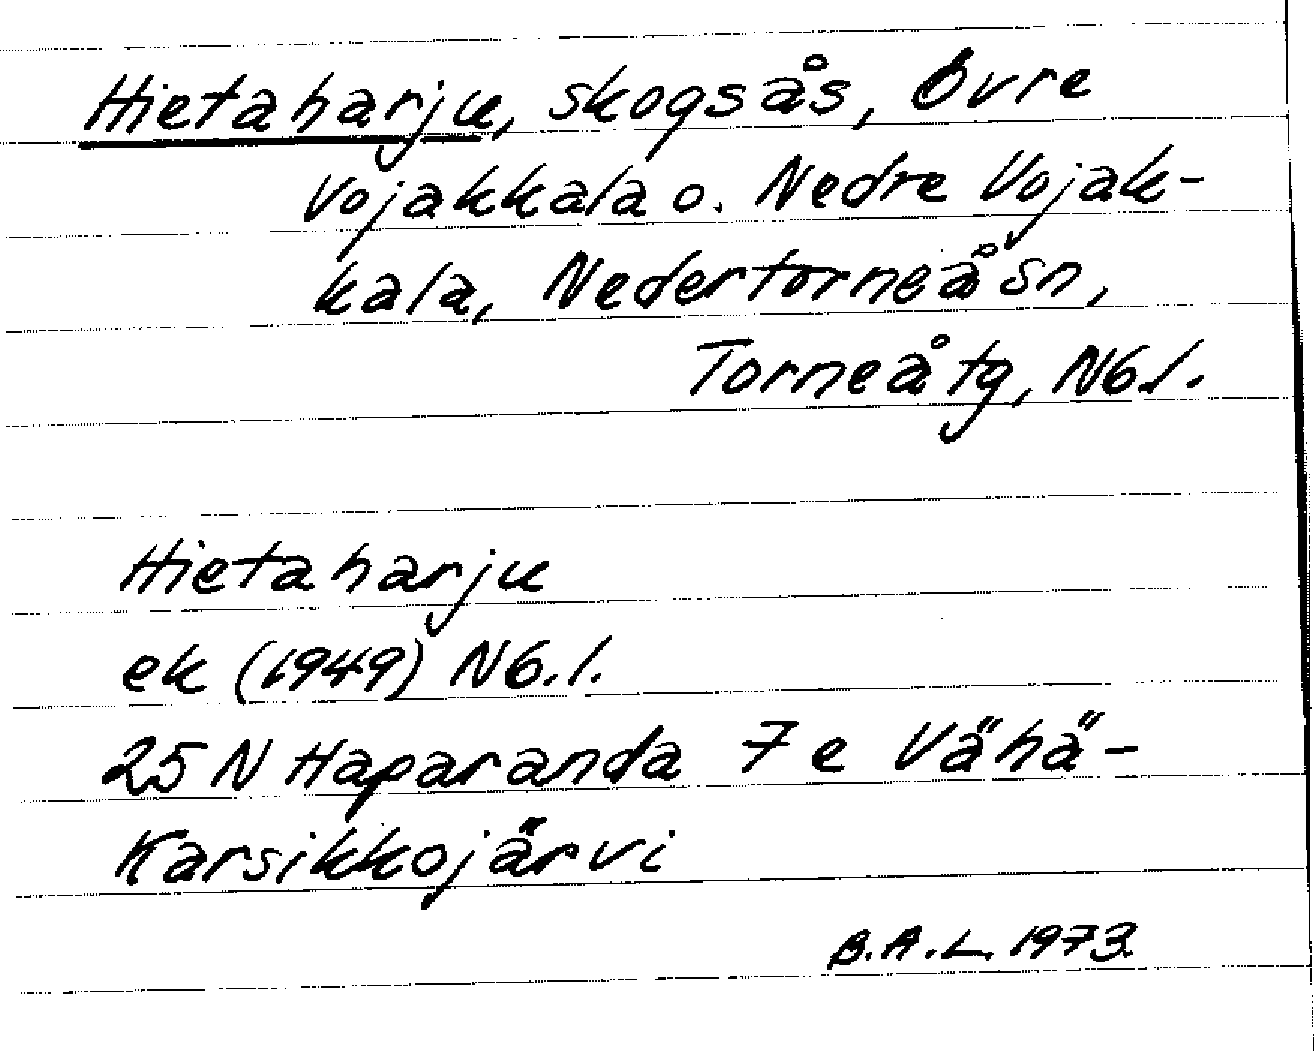 Hietaharju, skogsås, Övre
Vojakkala o. Nedre Vojak-
kala, Nedertorneå sn,
Torneå tg, Nb.l.
Hietaharju
ek (1949) Nb.l.
25 N Haparanda 7 e Vähä-
Karsikkojärvi
B.A.L. 1973.